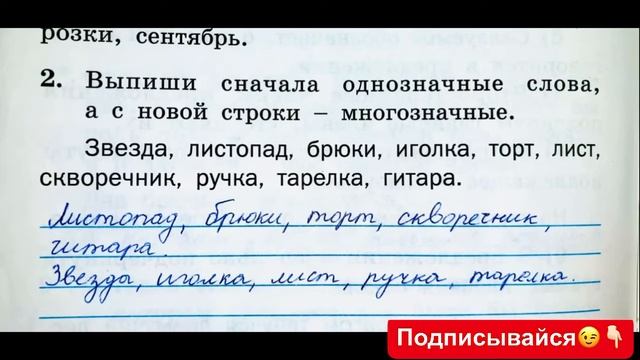 розки, сентябрь.
2. Выпиши сначала однозначные слова,
а с новой строки – многозначные.
Звезда, листопад, брюки, иголка, торт, лист,
скворечник, ручка, тарелка, гитара.
Листопад, брюки, торт, скворечник,
гитара
Звезды, иголка, лист, ручка, тарелка.
Подписывайся😉👇